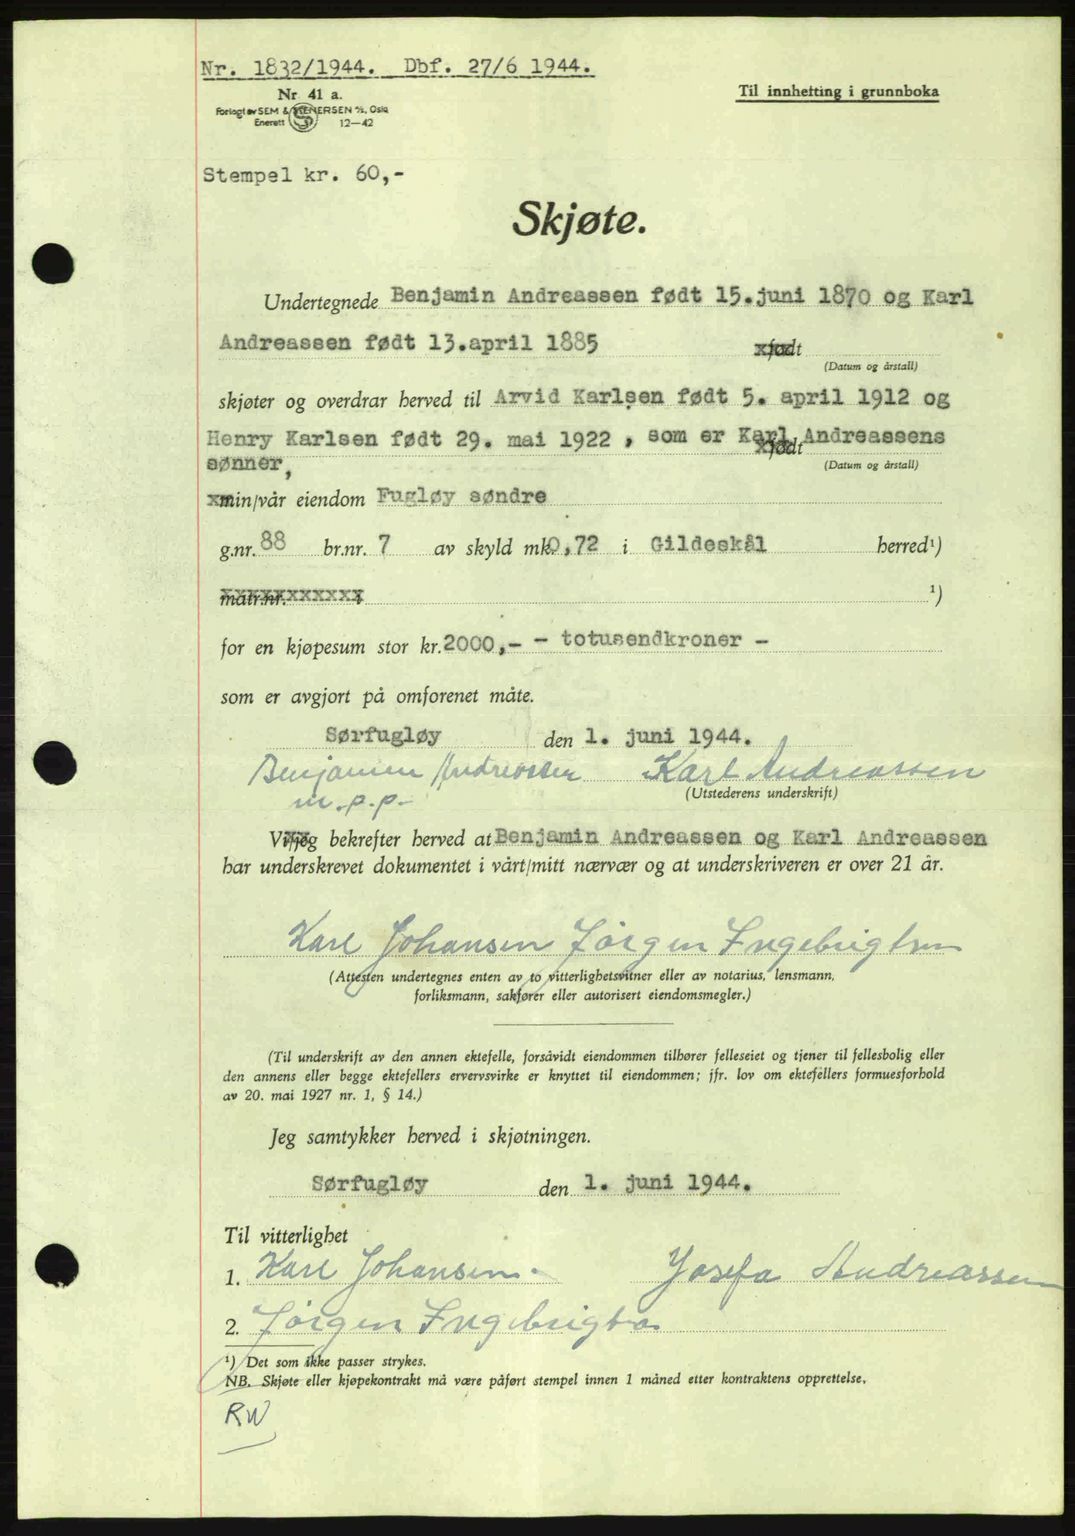 Nr. 1832/1944.  Dbf. 27/6 1944.
Nr 41 a.
Til innhefting i grunnboka
Forlagt av SEM & STENERSEN A/S, Oslo
Enerett 12—42
Stempel kr. 60,-
Skjøte.
Undertegnede Benjamin Andreassen født 15.juni 1870 og Karl
Andreassen født 13.april 1885 født
(Datum og årstall)
skjøter og overdrar herved til Arvid Karlsen født 5. april 1912 og
Henry Karlsen født 29. mai 1922 , som er Karl Andreassens
født
sønner,
(Datum og årstall)
min/vår eiendom Fugløy søndre
g.nr. 88 br.nr. 7 av skyld mk. 0,72 i Gildeskål herred¹)
matr.nr. xxxxxxxxxxx i ¹)
for en kjøpesum stor kr. 2000,- - totusendkroner -
som er avgjort på omforenet måte.
Sørfugløy den 1. juni 1944.
Benjamin Andreassen Karl Andreassen
m.p.p. (Utstederens underskrift)
Vi/jeg bekrefter herved at Benjamin Andreassen og Karl Andreassen
har underskrevet dokumentet i vårt/mitt nærvær og at underskriveren er over 21 år.
Karl Johansen Jörgen Ingebrigtsen
(Attesten undertegnes enten av to vitterlighetsvitner eller av notarius, lensmann,
forliksmann, sakfører eller autorisert eiendomsmegler.)
(Til underskrift av den annen ektefelle, forsåvidt eiendommen tilhører felleseiet og tjener til fellesbolig eller
den annens eller begge ektefellers ervervsvirke er knyttet til eiendommen; jfr. lov om ektefellers formuesforhold
av 20. mai 1927 nr. 1, § 14.)
Jeg samtykker herved i skjøtningen.
Sørfugløy den 1. juni 1944.
Til vitterlighet
1. Karl Johansen. Josefa Andreassen
2. Jörgen Ingebrigtsen
¹) Det som ikke passer strykes.
NB. Skjøte eller kjøpekontrakt må være påført stempel innen 1 måned etter kontraktens opprettelse.
RW